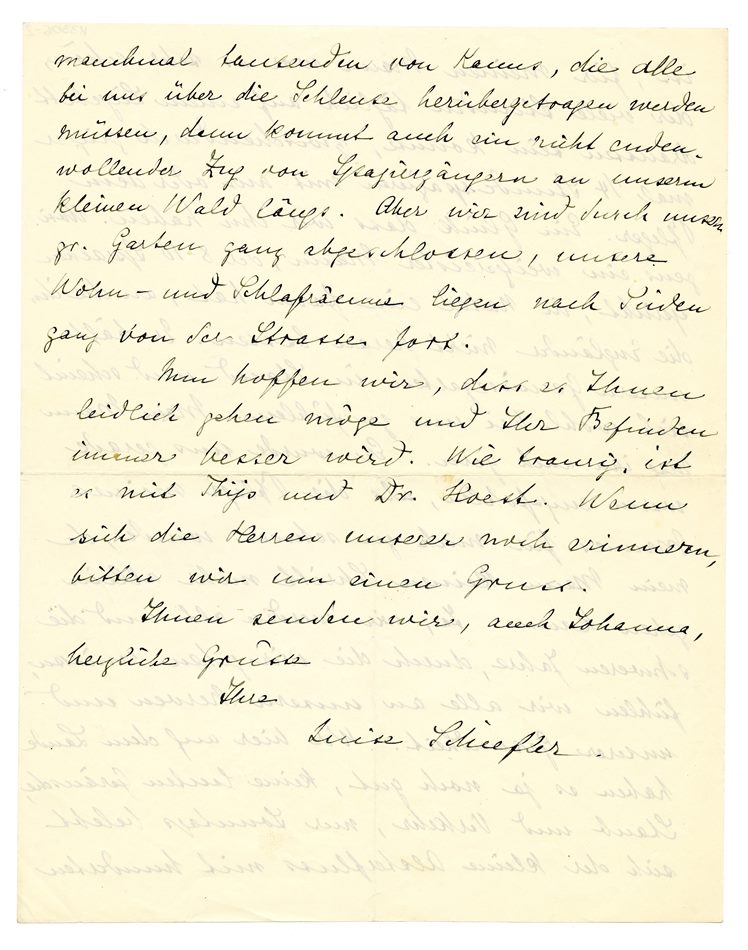 manchmal tausenden von Kanus, die alle
bei uns über die Schleuse herübergetragen werden
müssen, dann kommt auch ein nicht enden-
wollender Zug von Spaziergängern an unserm
kleinen Wald längs. Aber wir sind durch unsern
gr. Garten ganz abgeschlossen, unsere
Wohn- und Schlafräume liegen nach Süden
ganz von der Strasse fort.
Nun hoffen wir, dass es Ihnen
leidlich gehen möge und Ihr Befinden
immer besser wird. Wie traurig ist
es mit Thijs und Dr. Koest. Wenn
sich die Herren unserer noch erinnern,
bitten wir um einen Gruss.
Ihnen senden wir, auch Johanna,
herzliche Grüsse
Ihre
Luise Schiefler.